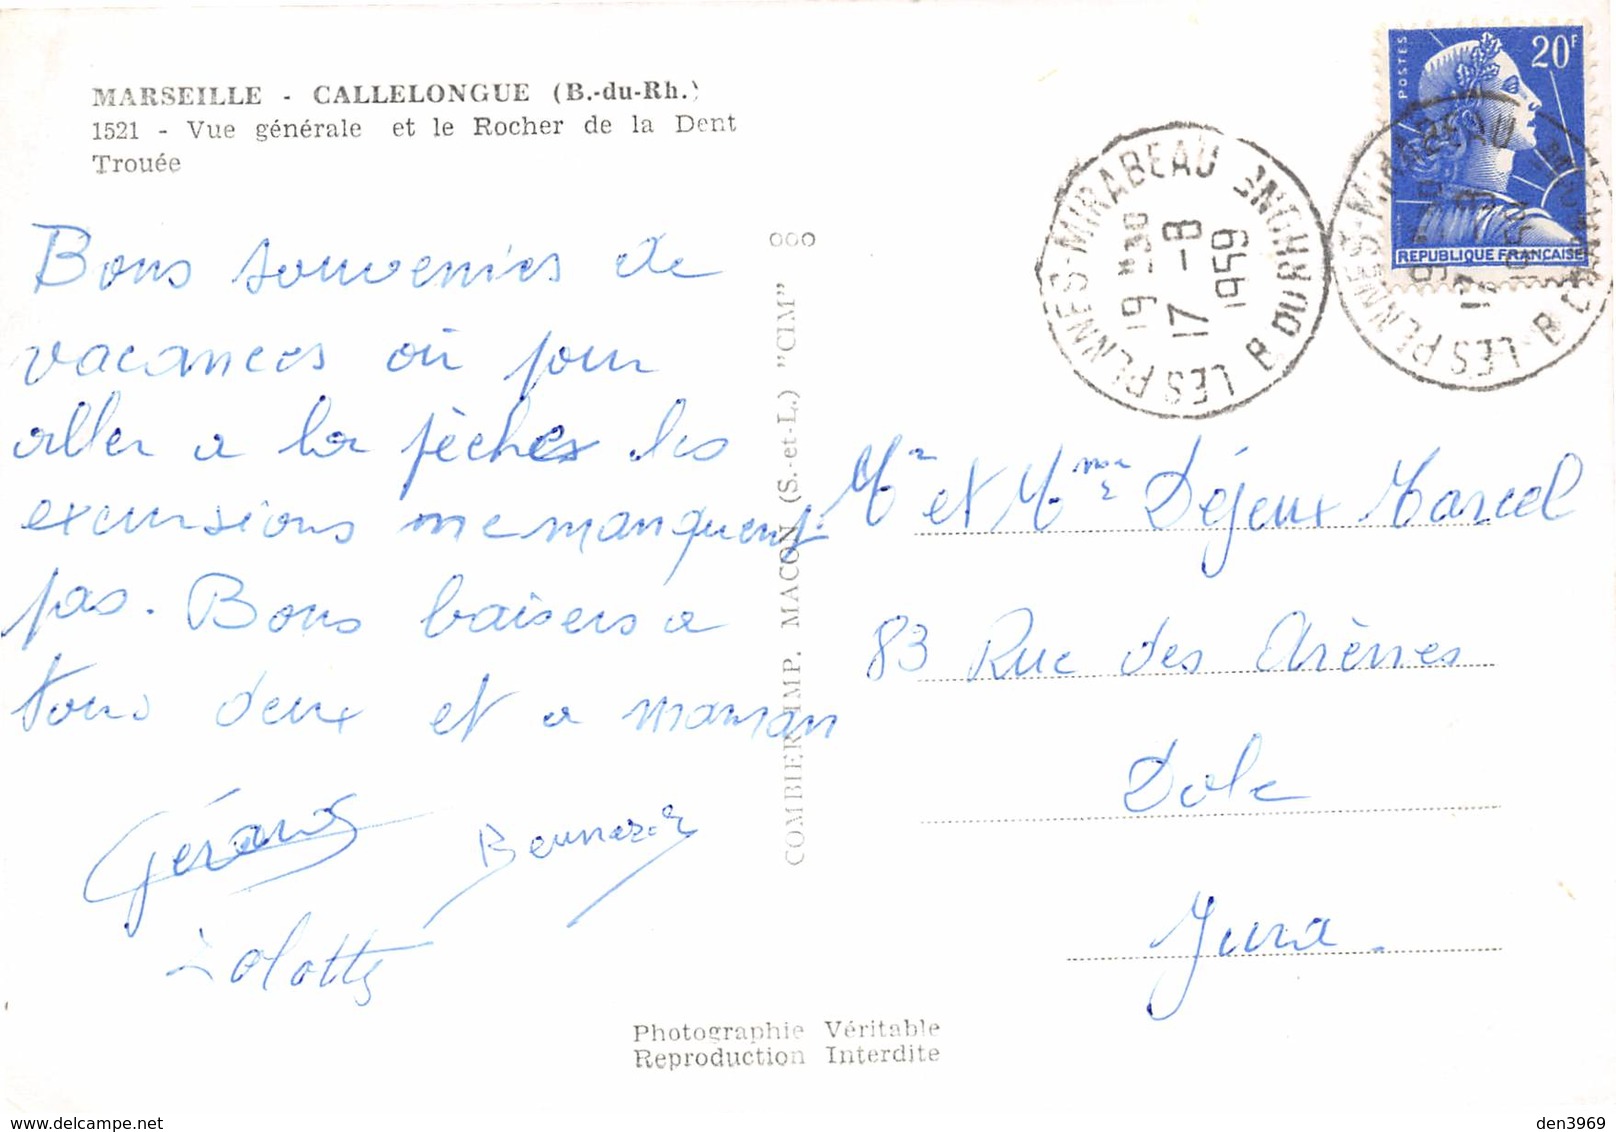 MARSEILLE - CALLELONGUE (B.-du-Rh.)
1521 - Vue générale et le Rocher de la Dent
Trouée
Bons souvenirs de
vacances où pour
aller a la pêche les
excursions ne manquent
pas. Bons baisers a
tous deux et a maman
Gérard
Bernard
Lolotte
COMBIER IMP. MACON (S.-et-L.) "CIM"
20F
POSTES
REPUBLIQUE FRANÇAISE
LES PENNES-MIRABEAU
B DU RHONE
19H30
17-8
1959
LES PENNES-MIRABEAU
Mr et Mme Déjeux Marcel
83 Rue des Arènes
Dole
Jura.
Photographie Véritable
Reproduction Interdite
delcampe.net
den3969